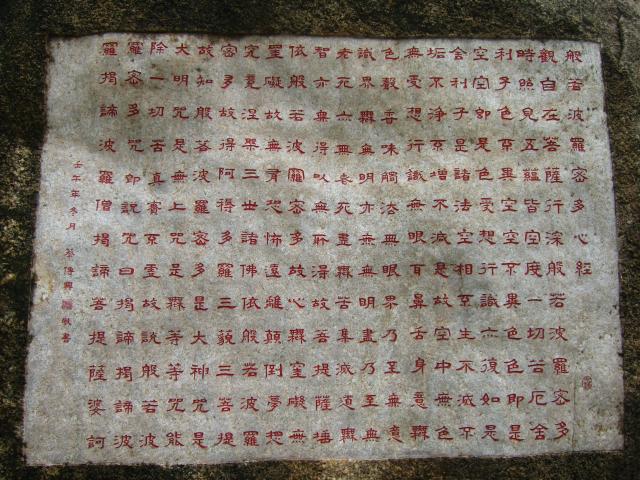 般若波羅密多心經
觀自在菩薩行深般若波羅密多
時照見五蘊皆空度一切苦厄舍
利子色不異空空不異色色即是
空空即是色受想行識亦復如是
舍利子是諸法空相不生不滅不
垢不淨不增不減是故空中無色
無受想行識無眼耳鼻舌身意無
色聲香味觸法無眼界乃至無意
識界無無明亦無無明盡乃至無
老死亦無老死盡無苦集滅道無
智亦無得以無所得故菩提薩埵
依般若波羅密多故心無罣礙無
罣礙故無有恐怖遠離顛倒夢想
究竟涅槃三世諸佛依般若波羅
密多故得阿得多羅三藐三菩提
故知般若波羅密多是大神咒是
大明咒是無上咒是無等等咒能
除一切苦真實不虛故說般若波
羅密多咒即說咒曰揭諦揭諦波
羅揭諦波羅僧揭諦菩提薩婆訶
壬午年冬月 敬書